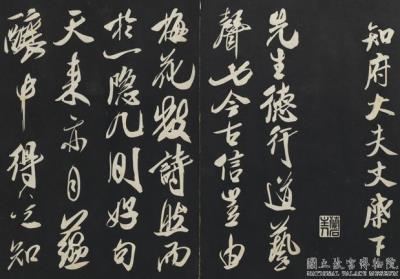 知府大夫丈座下
先生德行道藝
聲
今古信豈由
梅花數詩然而
於一隱几則好句
天來亦自蘊
釀中得之知
國立故宮博物院
NATIONAL PALACE MUSEUM